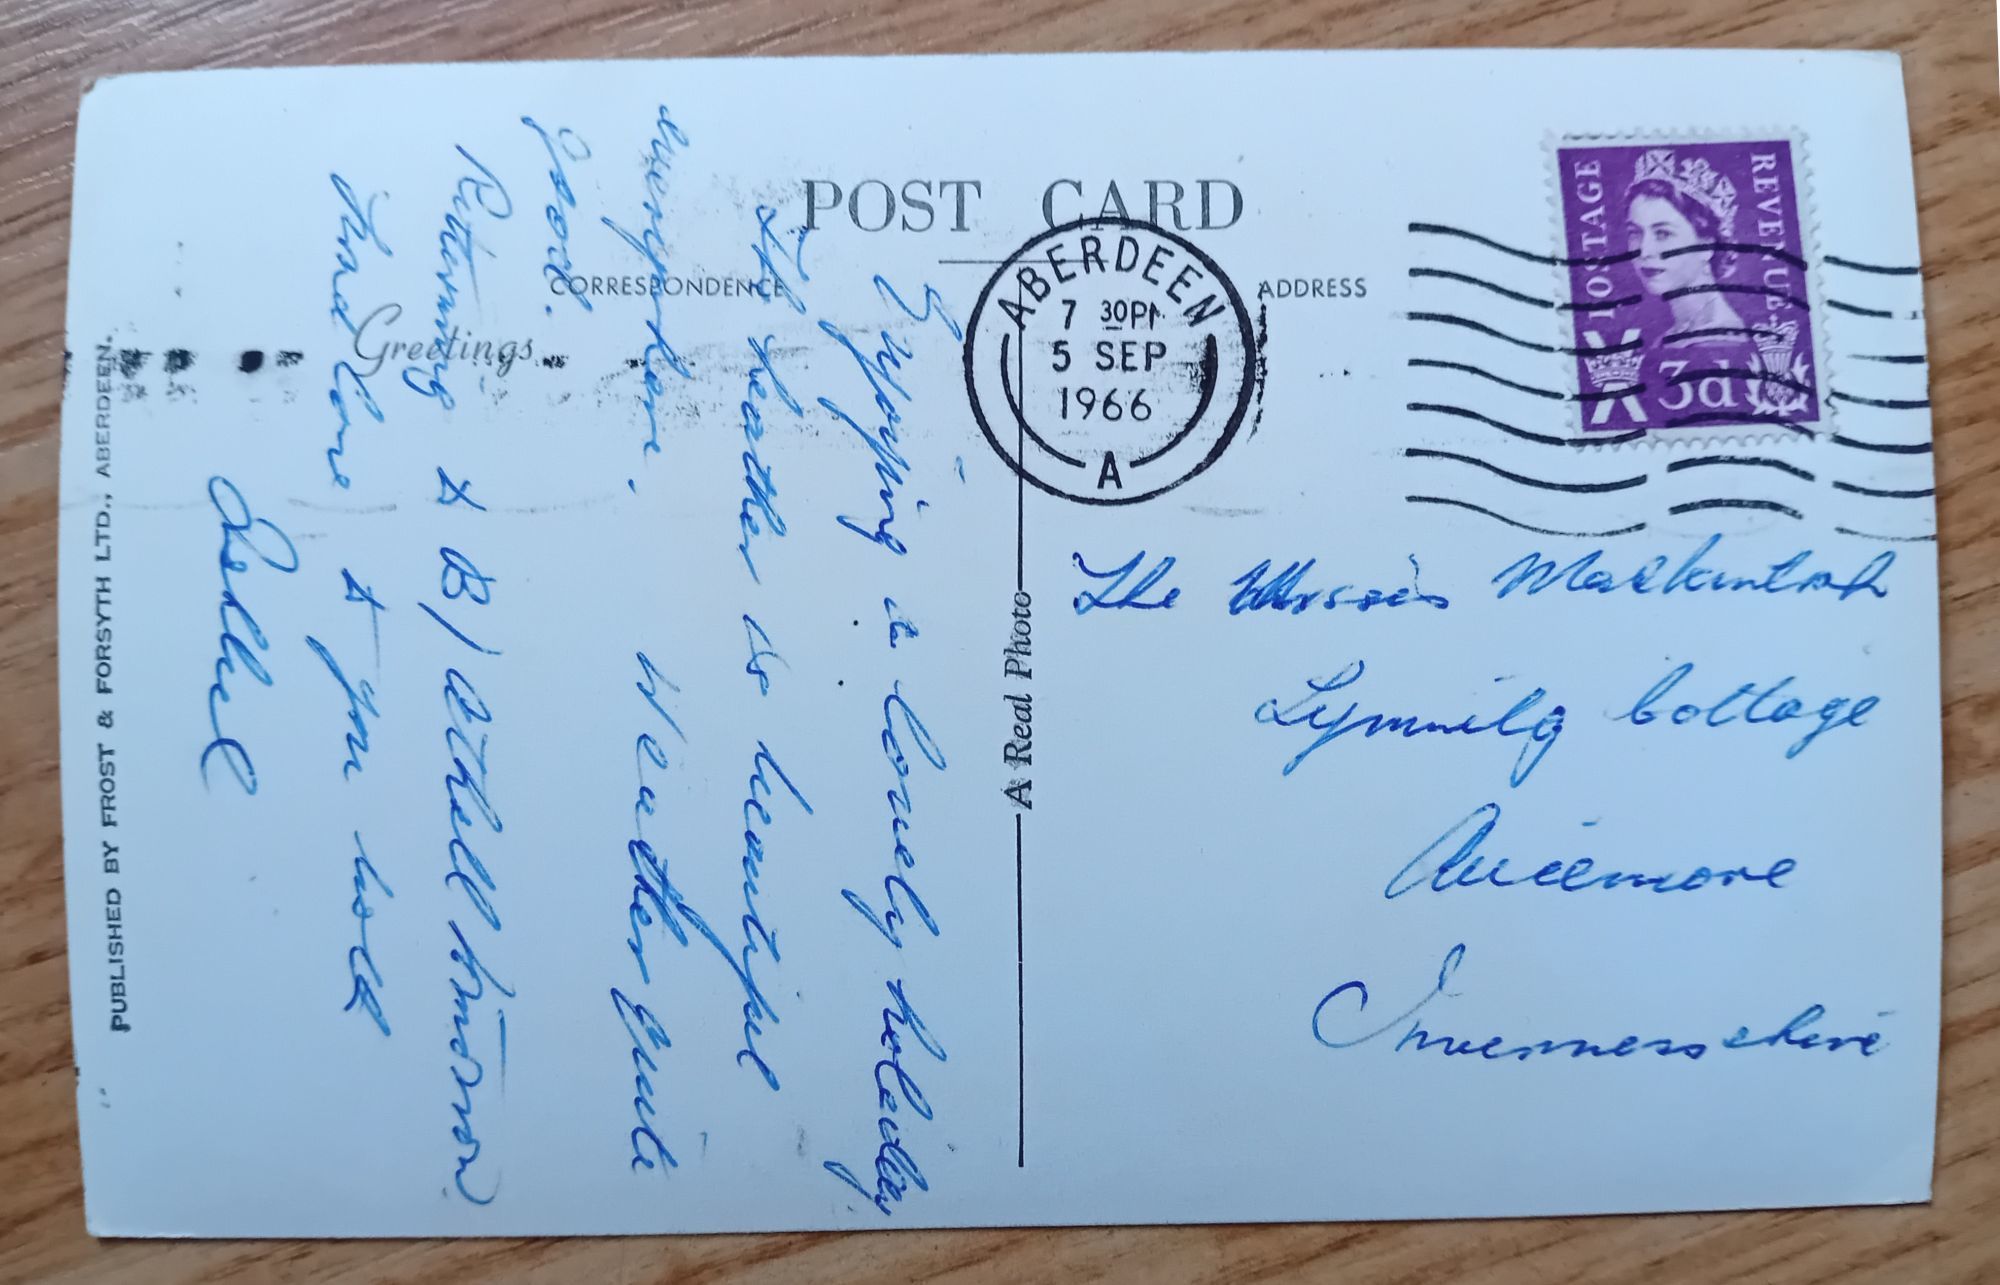 POST CARD
CORRESPONDENCE
ADDRESS
Greetings
ABERDEEN
7 30PM
5 SEP
1966
A
POSTAGE
REVENUE
3d
Enjoying a lovely holiday
The heather is beautiful
everywhere. Weather quite
good.
Returning to
fond love to you
The Misses Mackintosh
Cottage
Aviemore
Invernessshire
A Real Photo
PUBLISHED BY FROST & FORSYTH LTD., ABERDEEN.